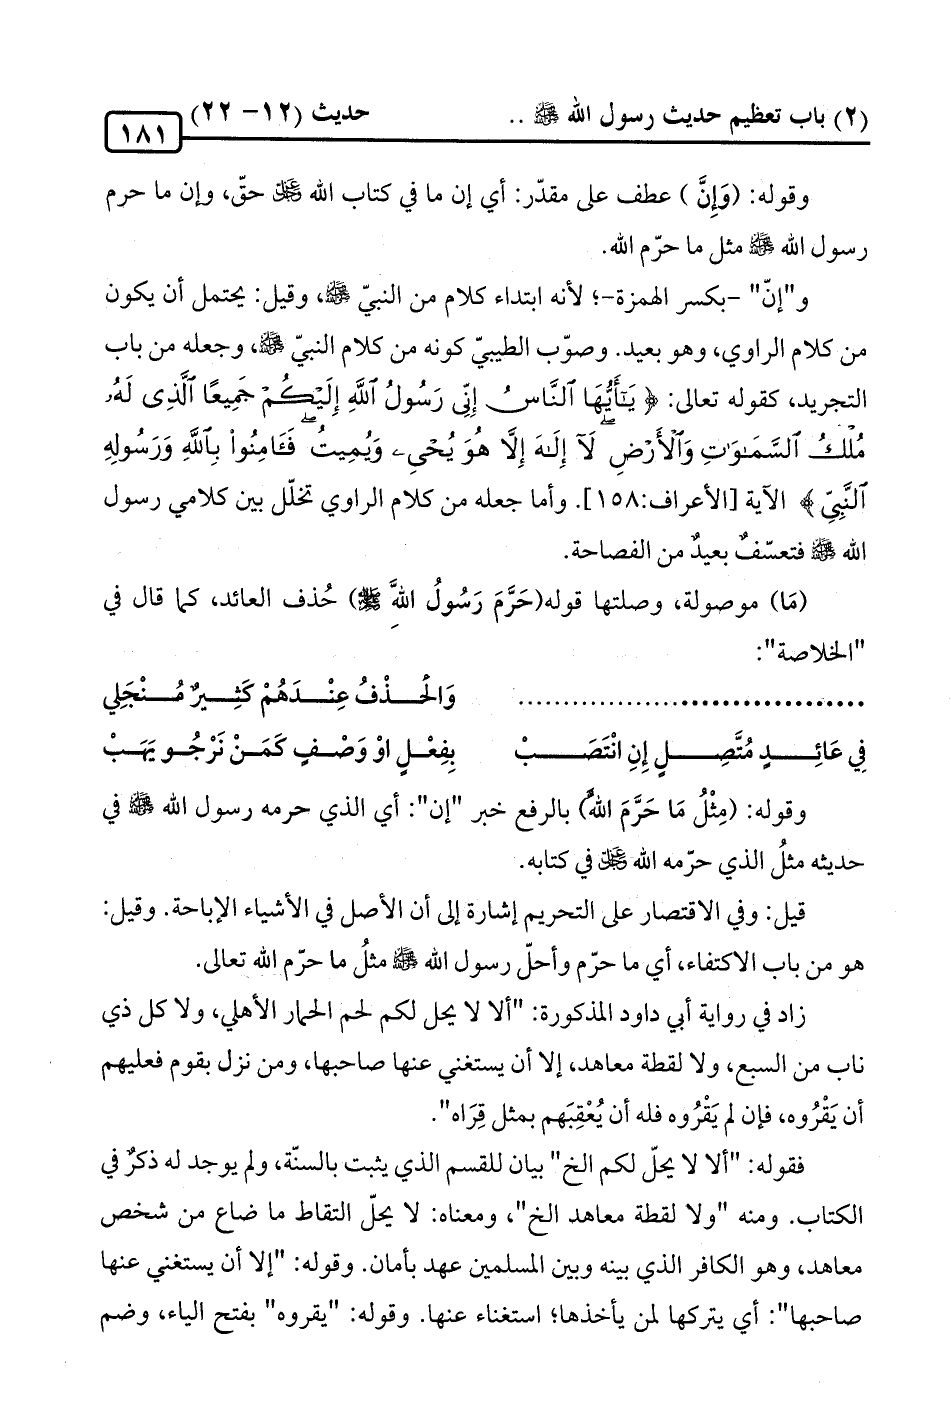 (٢) باب تعظيم حديث رسول الله ﷺ .. حديث (١٢- ٢٢)
١٨١
وقوله: (وَإِنَّ) عطف على مقدّر: أي إن ما في كتاب الله ﷻ حقّ، وإن ما حرم
رسول الله ﷺ مثل ما حرّم الله.
و"إنّ" -بكسر الهمزة-؛ لأنه ابتداء كلام من النبيّ ﷺ، وقيل: يحتمل أن يكون
من كلام الراوي، وهو بعيد. وصوّب الطيبيّ كونه من كلام النبيّ ﷺ، وجعله من باب
التجريد، كقوله تعالى: ﴿ يَٰٓأَيُّهَا ٱلنَّاسُ إِنِّي رَسُولُ ٱللَّهِ إِلَيْكُمْ جَمِيعًا ٱلَّذِى لَهُۥ
مُلْكُ ٱلسَّمَٰوَٰتِ وَٱلْأَرْضِ ۖ لَآ إِلَٰهَ إِلَّا هُوَ يُحْىِۦ وَيُمِيتُ ۖ فَـَٔامِنُوا۟ بِٱللَّهِ وَرَسُولِهِ
ٱلنَّبِىِّ ﴾ الآية [الأعراف:١٥٨]. وأما جعله من كلام الراوي تخلّل بين كلامي رسول
الله ﷺ فتعسّفٌ بعيدٌ من الفصاحة.
(مَا) موصولة، وصلتها قوله(حَرَّمَ رَسُولُ اللَّهِ ﷺ) حُذف العائد، كما قال في
"الخلاصة":
.................................... وَالْحَذْفُ عِنْدَهُمْ كَثِيرٌ مُنْجَلِي
فِي عَائِدٍ مُتَّصِلٍ إِنِ انْتَصَبْ بِفِعْلٍ اوْ وَصْفٍ كَمَنْ نَرْجُو يَهَبْ
وقوله: (مِثْلُ مَا حَرَّمَ اللهُ) بالرفع خبر "إن": أي الذي حرمه رسول الله ﷺ في
حديثه مثلُ الذي حرّمه الله ﷻ في كتابه.
قيل: وفي الاقتصار على التحريم إشارة إلى أن الأصل في الأشياء الإباحة. وقيل:
هو من باب الاكتفاء، أي ما حرّم وأحلّ رسول الله ﷺ مثلُ ما حرّم الله تعالى.
زاد في رواية أبي داود المذكورة: "ألا لا يحل لكم لحم الحمار الأهلي، ولا كل ذي
ناب من السبع، ولا لقطة معاهد، إلا أن يستغني عنها صاحبها، ومن نزل بقوم فعليهم
أن يَقْرُوه، فإن لم يَقْرُوه فله أن يُعْقِبَهم بمثل قِرَاه".
فقوله: "ألا لا يحلّ لكم الخ" بيان للقسم الذي يثبت بالسنّة، ولم يوجد له ذكرٌ في
الكتاب. ومنه "ولا لقطة معاهد الخ"، ومعناه: لا يحلّ التقاط ما ضاع من شخص
معاهد، وهو الكافر الذي بينه وبين المسلمين عهد بأمان. وقوله: "إلا أن يستغني عنها
صاحبها": أي يتركها لمن يأخذها؛ استغناء عنها. وقوله: "يقروه" بفتح الياء، وضم